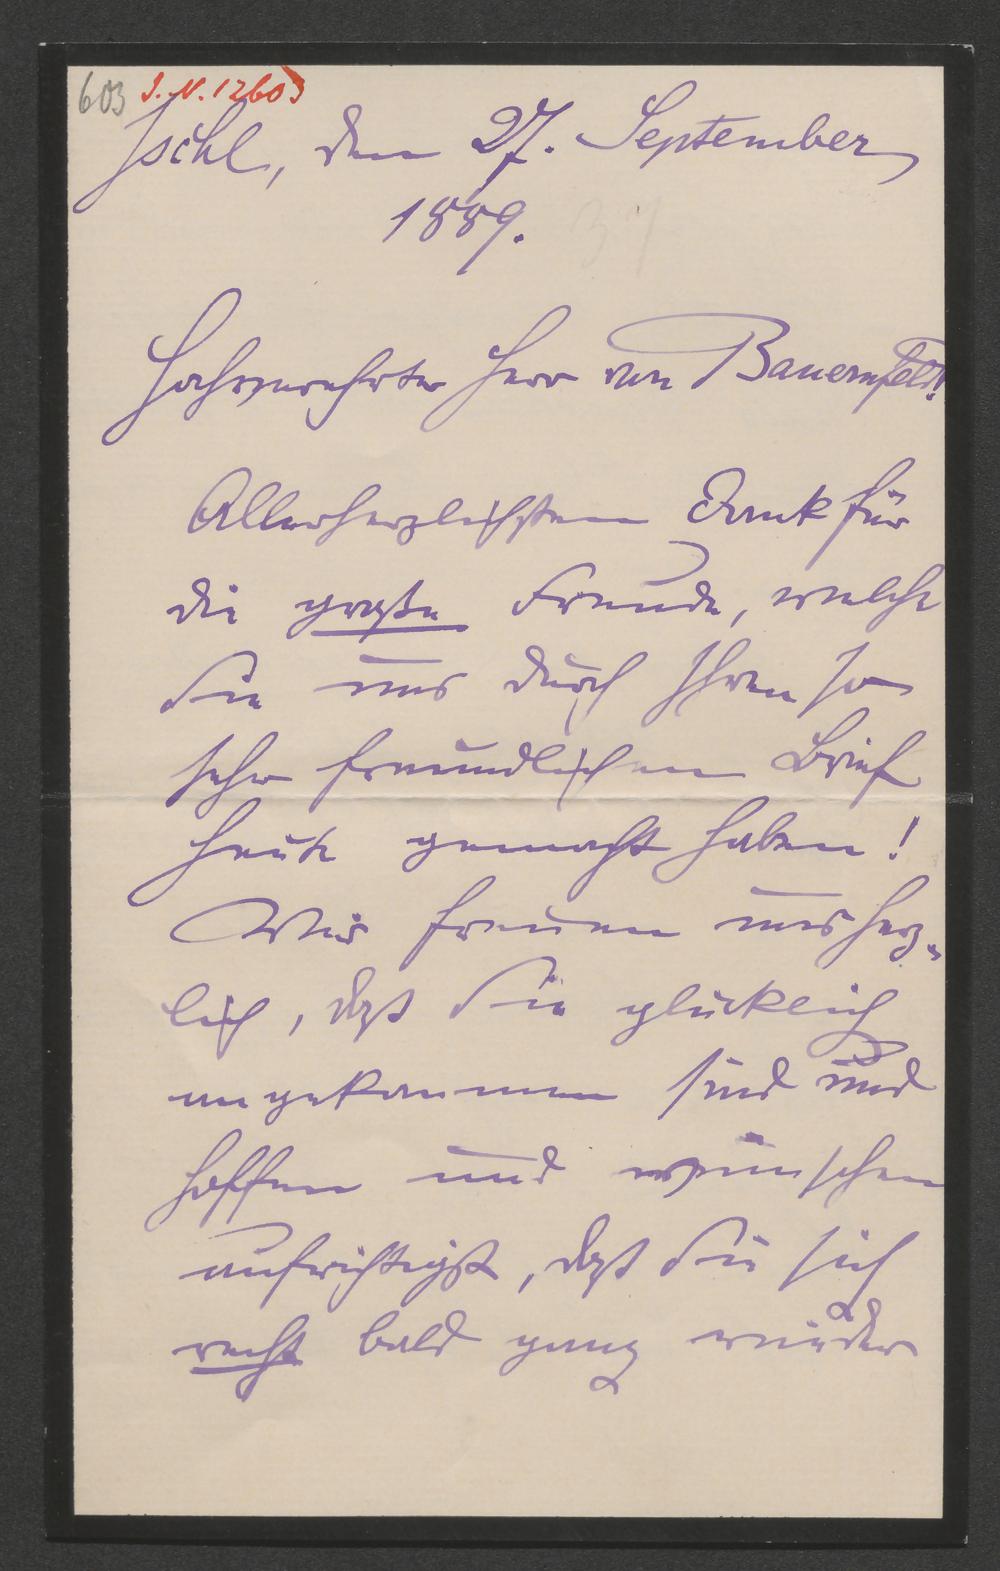 603 J.N. 12603
Ischl, den 27. September
1889.
Hochverehrter Herr von Bauernfeld!
Allerherzlichsten Dank für
die große Freude, welche
Sie uns durch Ihren so
sehr freundlichen Brief
heute gemacht haben!
Wir freuen uns herz-
lich, daß Sie glücklich
angekommen sind und
hoffen und wünschen
aufrichtigst, daß Sie sich
recht bald ganz wieder